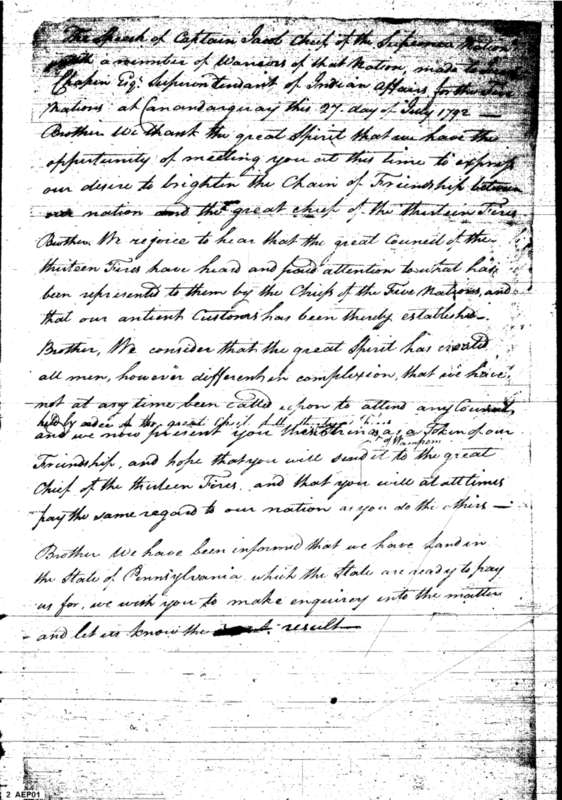 The Speech of Captain Jacob Chief of the Supernea Nation
with a number of Warriors of that Nation, made to
Chapin Esqr. Superentendant of Indian Affairs for the Five
Nations at Canandarquay this 27 day of July 1792 —
Brother We thank the great Spirit that we have the
opportunity of meeting you at this time to express
our desire to brighten the Chain of Friendship between
our nation and the great chief of the thirteen Fires
Brother. We rejoice to hear that the great Council of the
thirteen Fires have heard and paid attention to what has
been represented to them by the Chiefs of the Five Nations, and
that our antient Customs has been thereby establishe
Brother, We consider that the great Spirit has created
all men, however different in complexion, that we have
not at any time been called upon to attend any Council
held by order of the great Chief of the thirteen Fires
and we now present you these Strings as a Token of our
of Wampom
Friendship, and hope that you will send it to the great
Chief of the thirteen Fires, and that you will at all times
pay the same regard to our nation as you do the others —
Brother We have been informed that we have Land in
the State of Pennsylvania which the State are ready to pay
us for, we wish you to make enquirey into the matter
and let us know the result —
2 AEP01